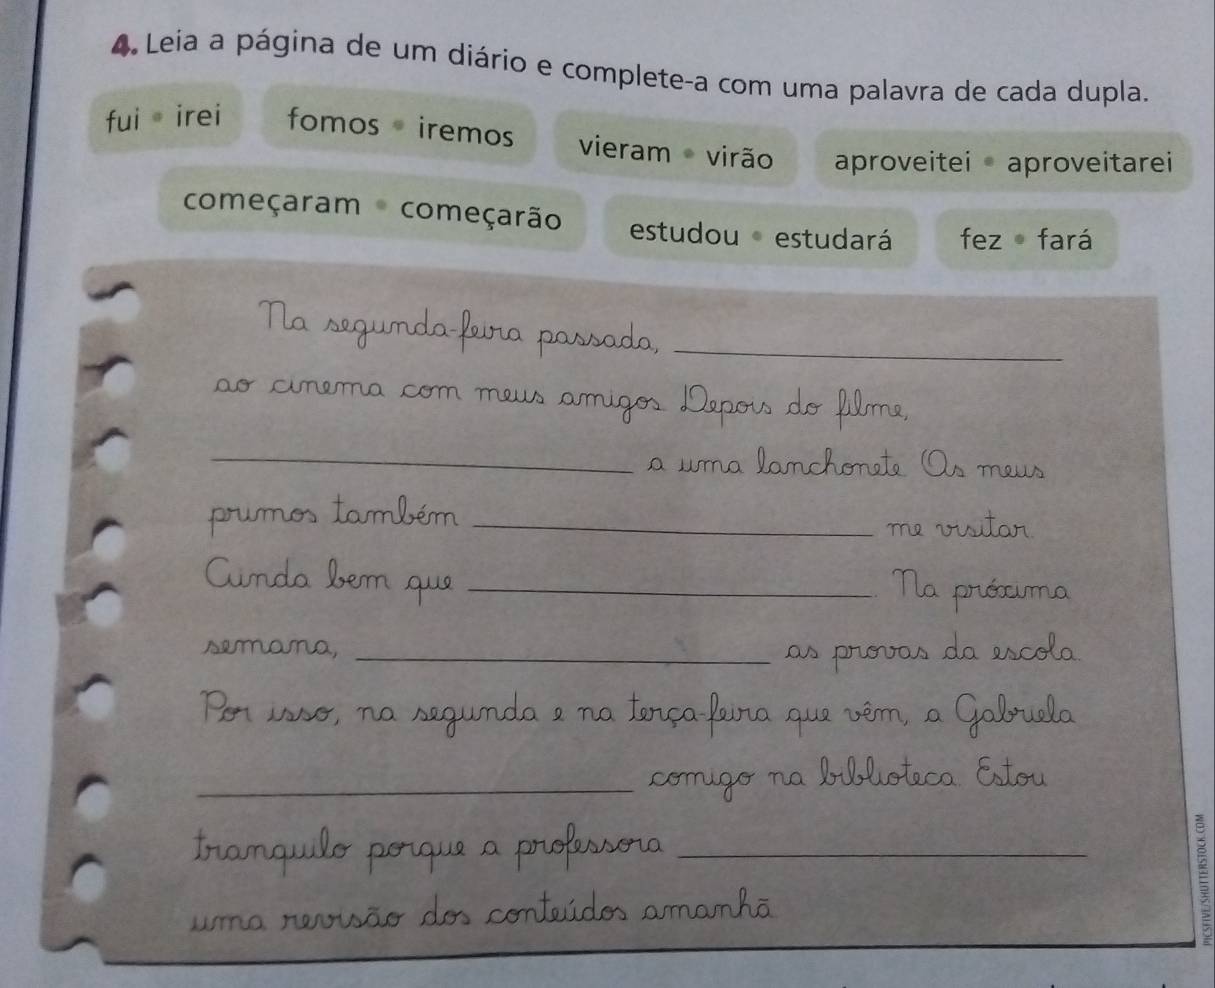 4. Leia a página de um diário e complete-a com uma palavra de cada dupla.
fui • irei fomos • iremos vieram • virão aproveitei • aproveitarei
começaram • começarão estudou • estudará fez • fará
Na segunda-feira passada, ____________
ao cinema com meus amigos. Depois do filme,
____________ a uma lanchonete. Os meus
primos também ____________ me visitar.
Ainda bem que ____________. Na próxima
semana, ____________ as provas da escola.
Por isso, na segunda e na terça-feira que vêm, a Gabriela
____________ comigo na biblioteca. Estou
tranquilo porque a professora ____________
uma revisão dos conteúdos amanhã.
PICSFIVE/SHUTTERSTOCK.COM